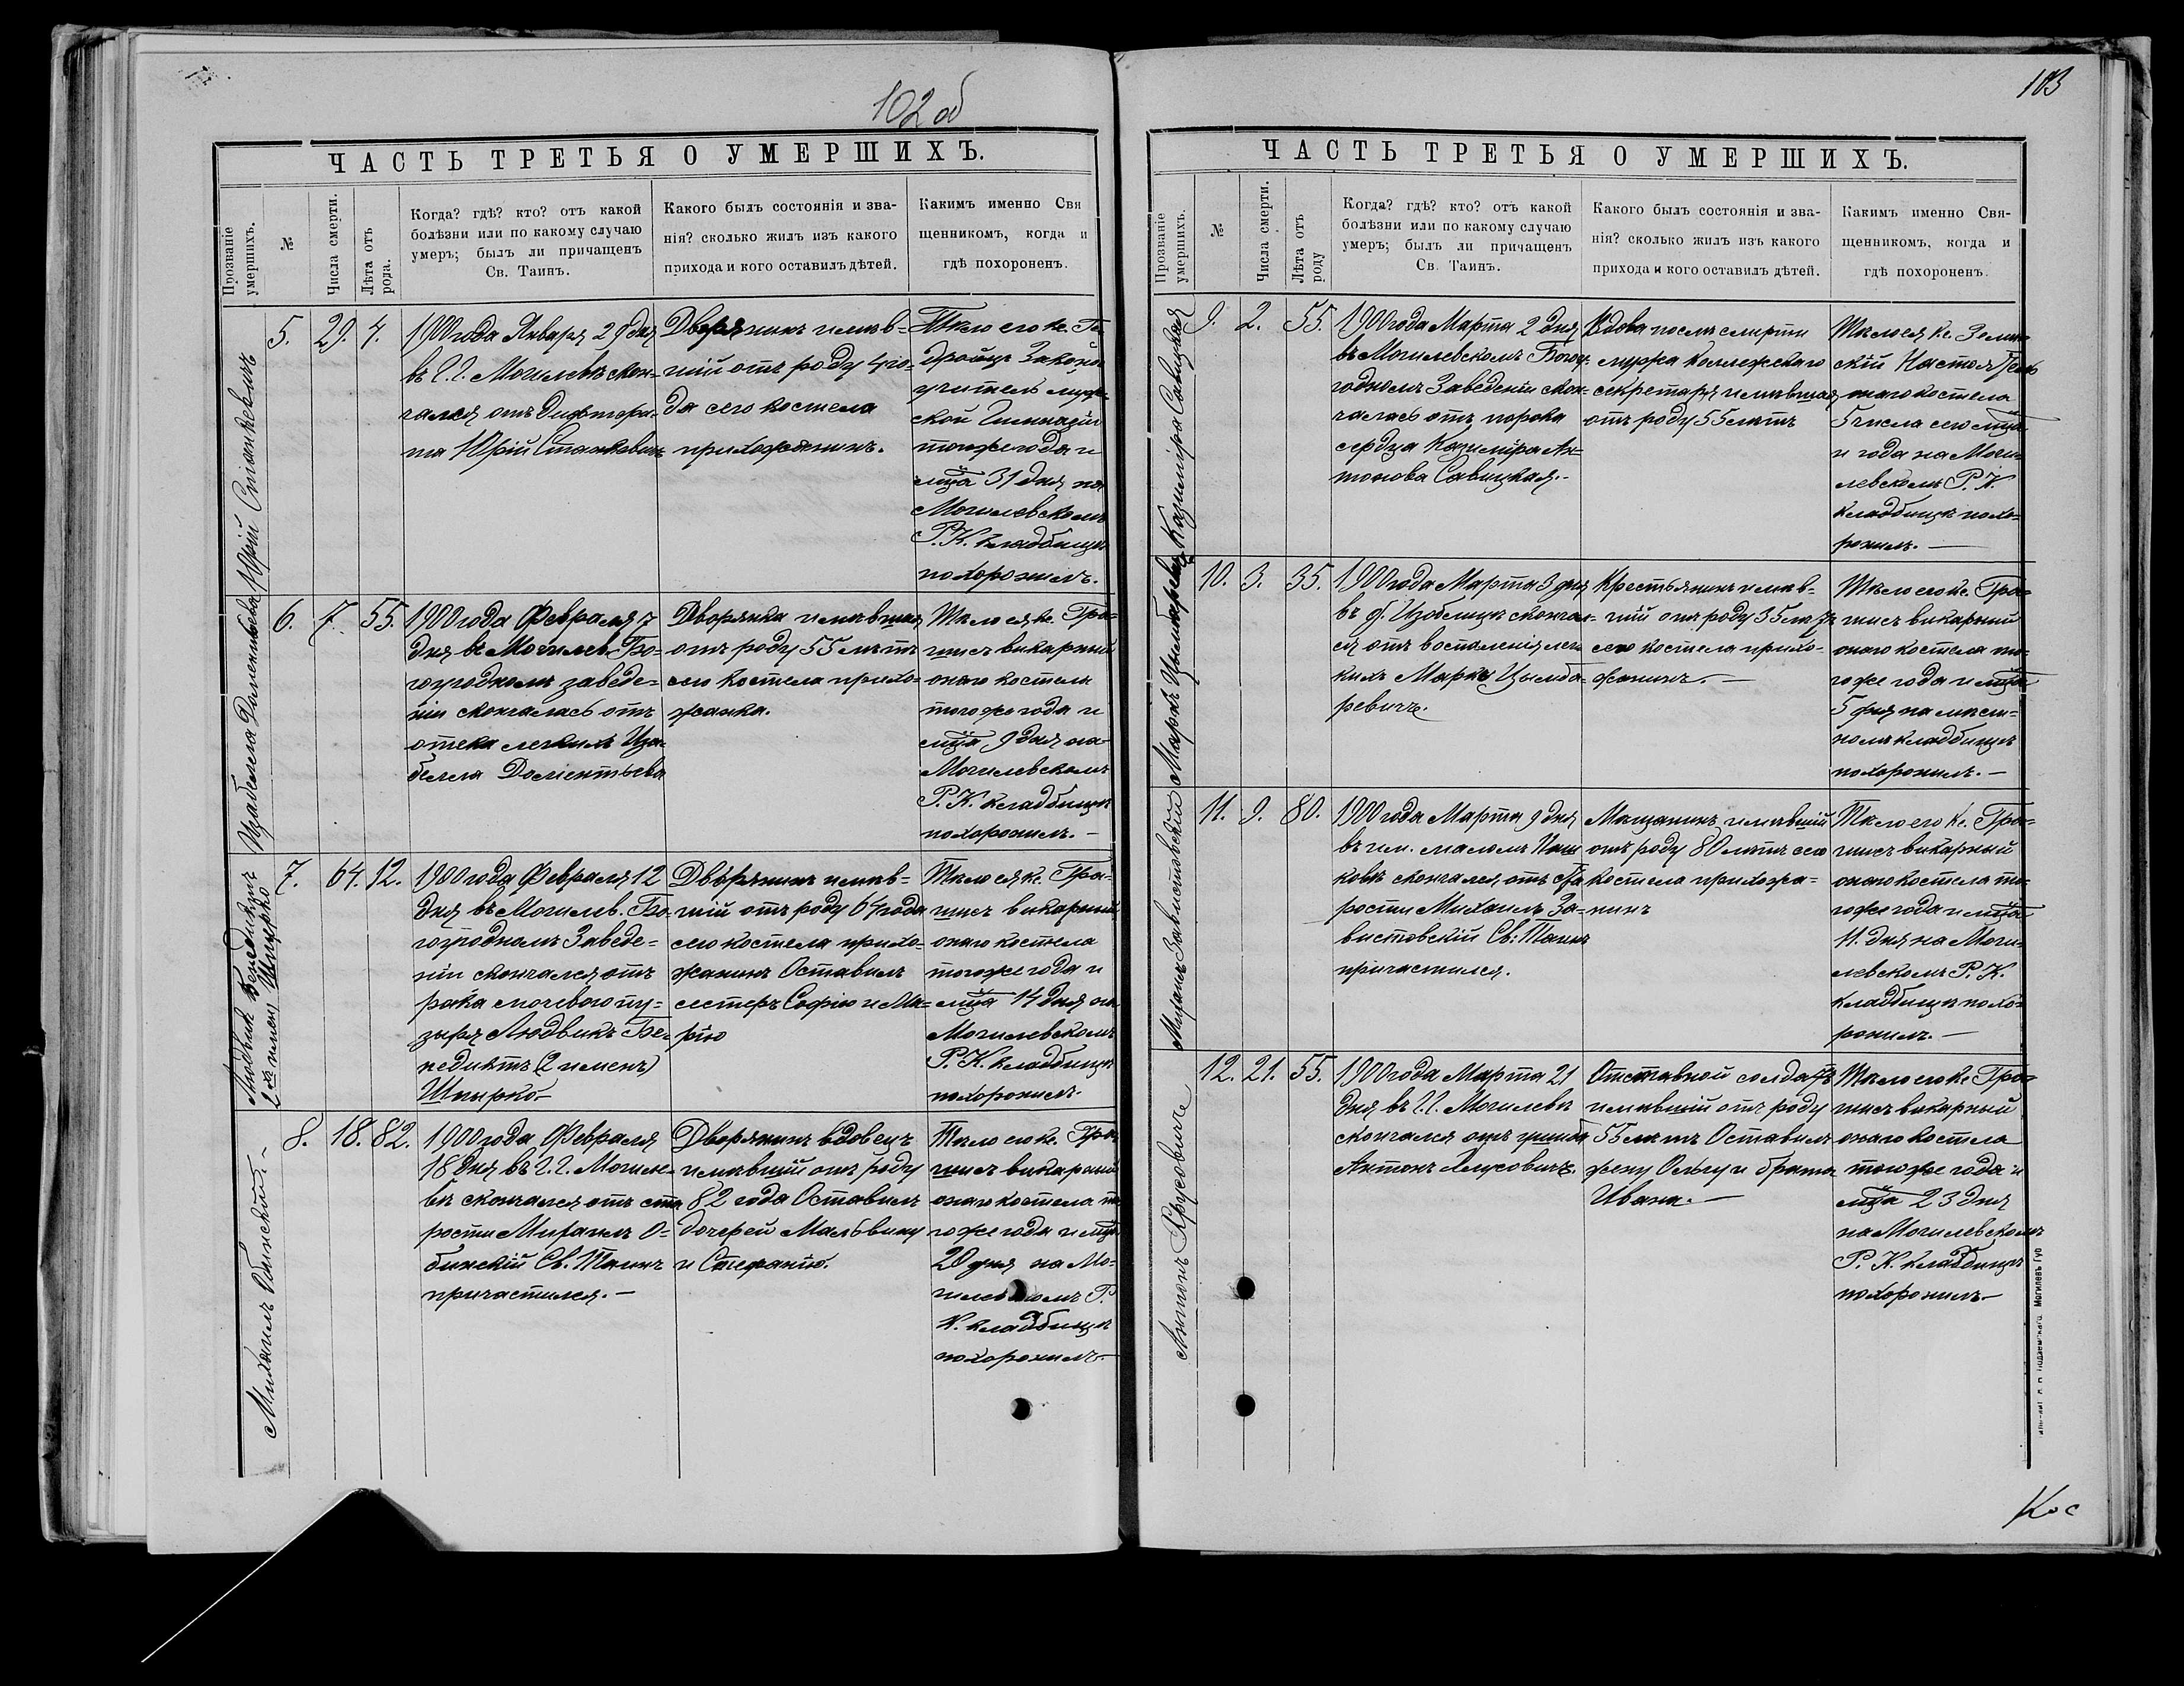 102 об
ЧАСТЬ ТРЕТЬЯ О УМЕРШИХЪ.
Прозваніе
умершихъ.
№
Числа смерти.
Лѣта отъ
рода.
Когда? гдѣ? кто? отъ какой
болѣзни или по какому случаю
умеръ; былъ ли причащенъ
Св. Таинъ.
Какого былъ состоянія и зва-
нія? сколько жилъ изъ какого
прихода и кого оставилъ дѣтей.
Какимъ именно Свя
щенникомъ, когда и
гдѣ похороненъ.
Юрій Станкевичъ
5.
29.
4.
1900 года Января 29 дня
въ г. г. Могилевѣ скон-
чался отъ дифтери-
та Юрій Станкевичъ
Дворянинъ имѣв-
шій отъ роду 4 го-
да сего костела
прихожанинъ.
Тѣло его Кс.
Законо
учитель муж-
ской Гимназіи
тогоже года и
мца 31 дня на
Могилевскомъ
Р. К. кладбищѣ
похоронилъ.
Изабелла Доментьева
6.
7.
55.
1900 года Февраля 7
дня въ Могилев. Бо-
гоугодномъ заведе-
ніи скончалась отъ
отека легкихъ Иза-
белла Доментьева
Дворянка имѣвшая
отъ роду 55 лѣтъ
сего костела прихо-
жанка.
Тѣло ея Кс. Гра-
шисъ викарный
онаго костела
тогоже года и
мца 9 дня на
Могилевскомъ
Р. К. кладбищѣ
похоронилъ. —
Людвикъ Бенедиктъ
2хъ именъ Шпырко
7.
64.
12.
1900 года Февраля 12
дня въ Могилев. Бо-
гоугодномъ Заведе-
ніи скончался отъ
рака мочеваго пу-
зыря Людвикъ Бе-
недиктъ (2 именъ)
Шпырко. —
Дворянинъ имѣв-
шій отъ роду 64 года
сего костела прихо-
жанинъ Оставилъ
сестеръ Софію и Ма-
рію
Тѣло ея Кс. Гра-
шисъ викарный
онаго костела
тогоже года и
мца 14 дня на
Могилевскомъ
Р. К. кладбищѣ
похоронилъ.
Михаилъ Обинскій. —
8.
18.
82.
1900 года Февраля
18 дня въ г. г. Могиле-
вѣ скончался отъ ста
рости Михаилъ О-
бинскій Св. Таинъ
причастился. —
Дворянинъ вдовецъ
имѣвшій отъ роду
82 года Оставилъ
дочерей Мальвину
и Стефанію.
Тѣло его Кс. Гра
шисъ викарный
онаго костела то
гоже года и мца
20 дня на Мо-
гилевскомъ Р.
К. кладбищѣ
похоронилъ —
103
ЧАСТЬ ТРЕТЬЯ О УМЕРШИХЪ.
Прозваніе
умершихъ.
№
Числа смерти.
Лѣта отъ
роду
Когда? гдѣ? кто? отъ какой
болѣзни или по какому случаю
умеръ; былъ ли причащенъ
Св. Таинъ.
Какого былъ состоянія и зва-
нія? сколько жилъ изъ какого
прихода и кого оставилъ дѣтей.
Какимъ именно Свя-
щенникомъ, когда и
гдѣ похороненъ.
Казимира Савицкая
9.
2.
55.
1900 года Марта 2 дня
въ Могилевскомъ Богоу-
годномъ Заведеніи скон-
чалась отъ порока
сердца Казимира Ан-
тонова Савицкая. -
Вдова послѣ смерти
мужа Коллежскаго
секретаря имѣвшая
отъ роду 55 лѣтъ
Тѣло ея Кс.
скій Настоятель
онаго костела
5 числа сего мца
и года на Моги-
левскомъ Р. К.
кладбищѣ похо-
ронилъ. —
Маркъ Цымбаревичъ
10.
3.
35.
1900 года Марта 3 дня
въ д. Изоблицѣ скончал-
ся отъ воспаленія лег-
кихъ Маркъ Цымба-
ревичъ.
Крестьянинъ имѣв-
шій отъ роду 35 лѣтъ
сего костела прихо-
жанинъ. —
Тѣло его Кс. Гра-
шисъ викарный
онаго костела то-
гоже года и мца
5 дня на мѣст-
номъ кладбищѣ
похоронилъ. —
Михаилъ Завистовскій
11.
9.
80.
1900 года Марта 9 дня
въ им. маломъ
ковѣ скончался отъ ста
рости Михаилъ За-
вистовскій Св: Таинъ
причастился.
Мѣщанинъ имѣвшій
отъ роду 80 лѣтъ сего
костела прихожа-
нинъ
Тѣло его Кс. Гра-
шисъ викарный
онаго костела то-
гоже года и мца
11. дня на Моги-
левскомъ Р. К.
кладбищѣ похо-
ронилъ. —
Антонъ Хрусовичъ
12.
21.
55.
1900 года Марта 21
дня въ г. г. Могилевѣ
скончался отъ ушиба
Антонъ Хрусовичъ.
Отставной солдатъ
имѣвшій отъ роду
55 лѣтъ Оставилъ
жену Ольгу и брата
Ивана. —
Тѣло его Кс Гра-
шисъ викарный
онаго костела
тогоже года и
мца 23 дня
на Могилевскомъ
Р. К. кладбищѣ
похоронилъ —
Могилевъ Губ
Кос